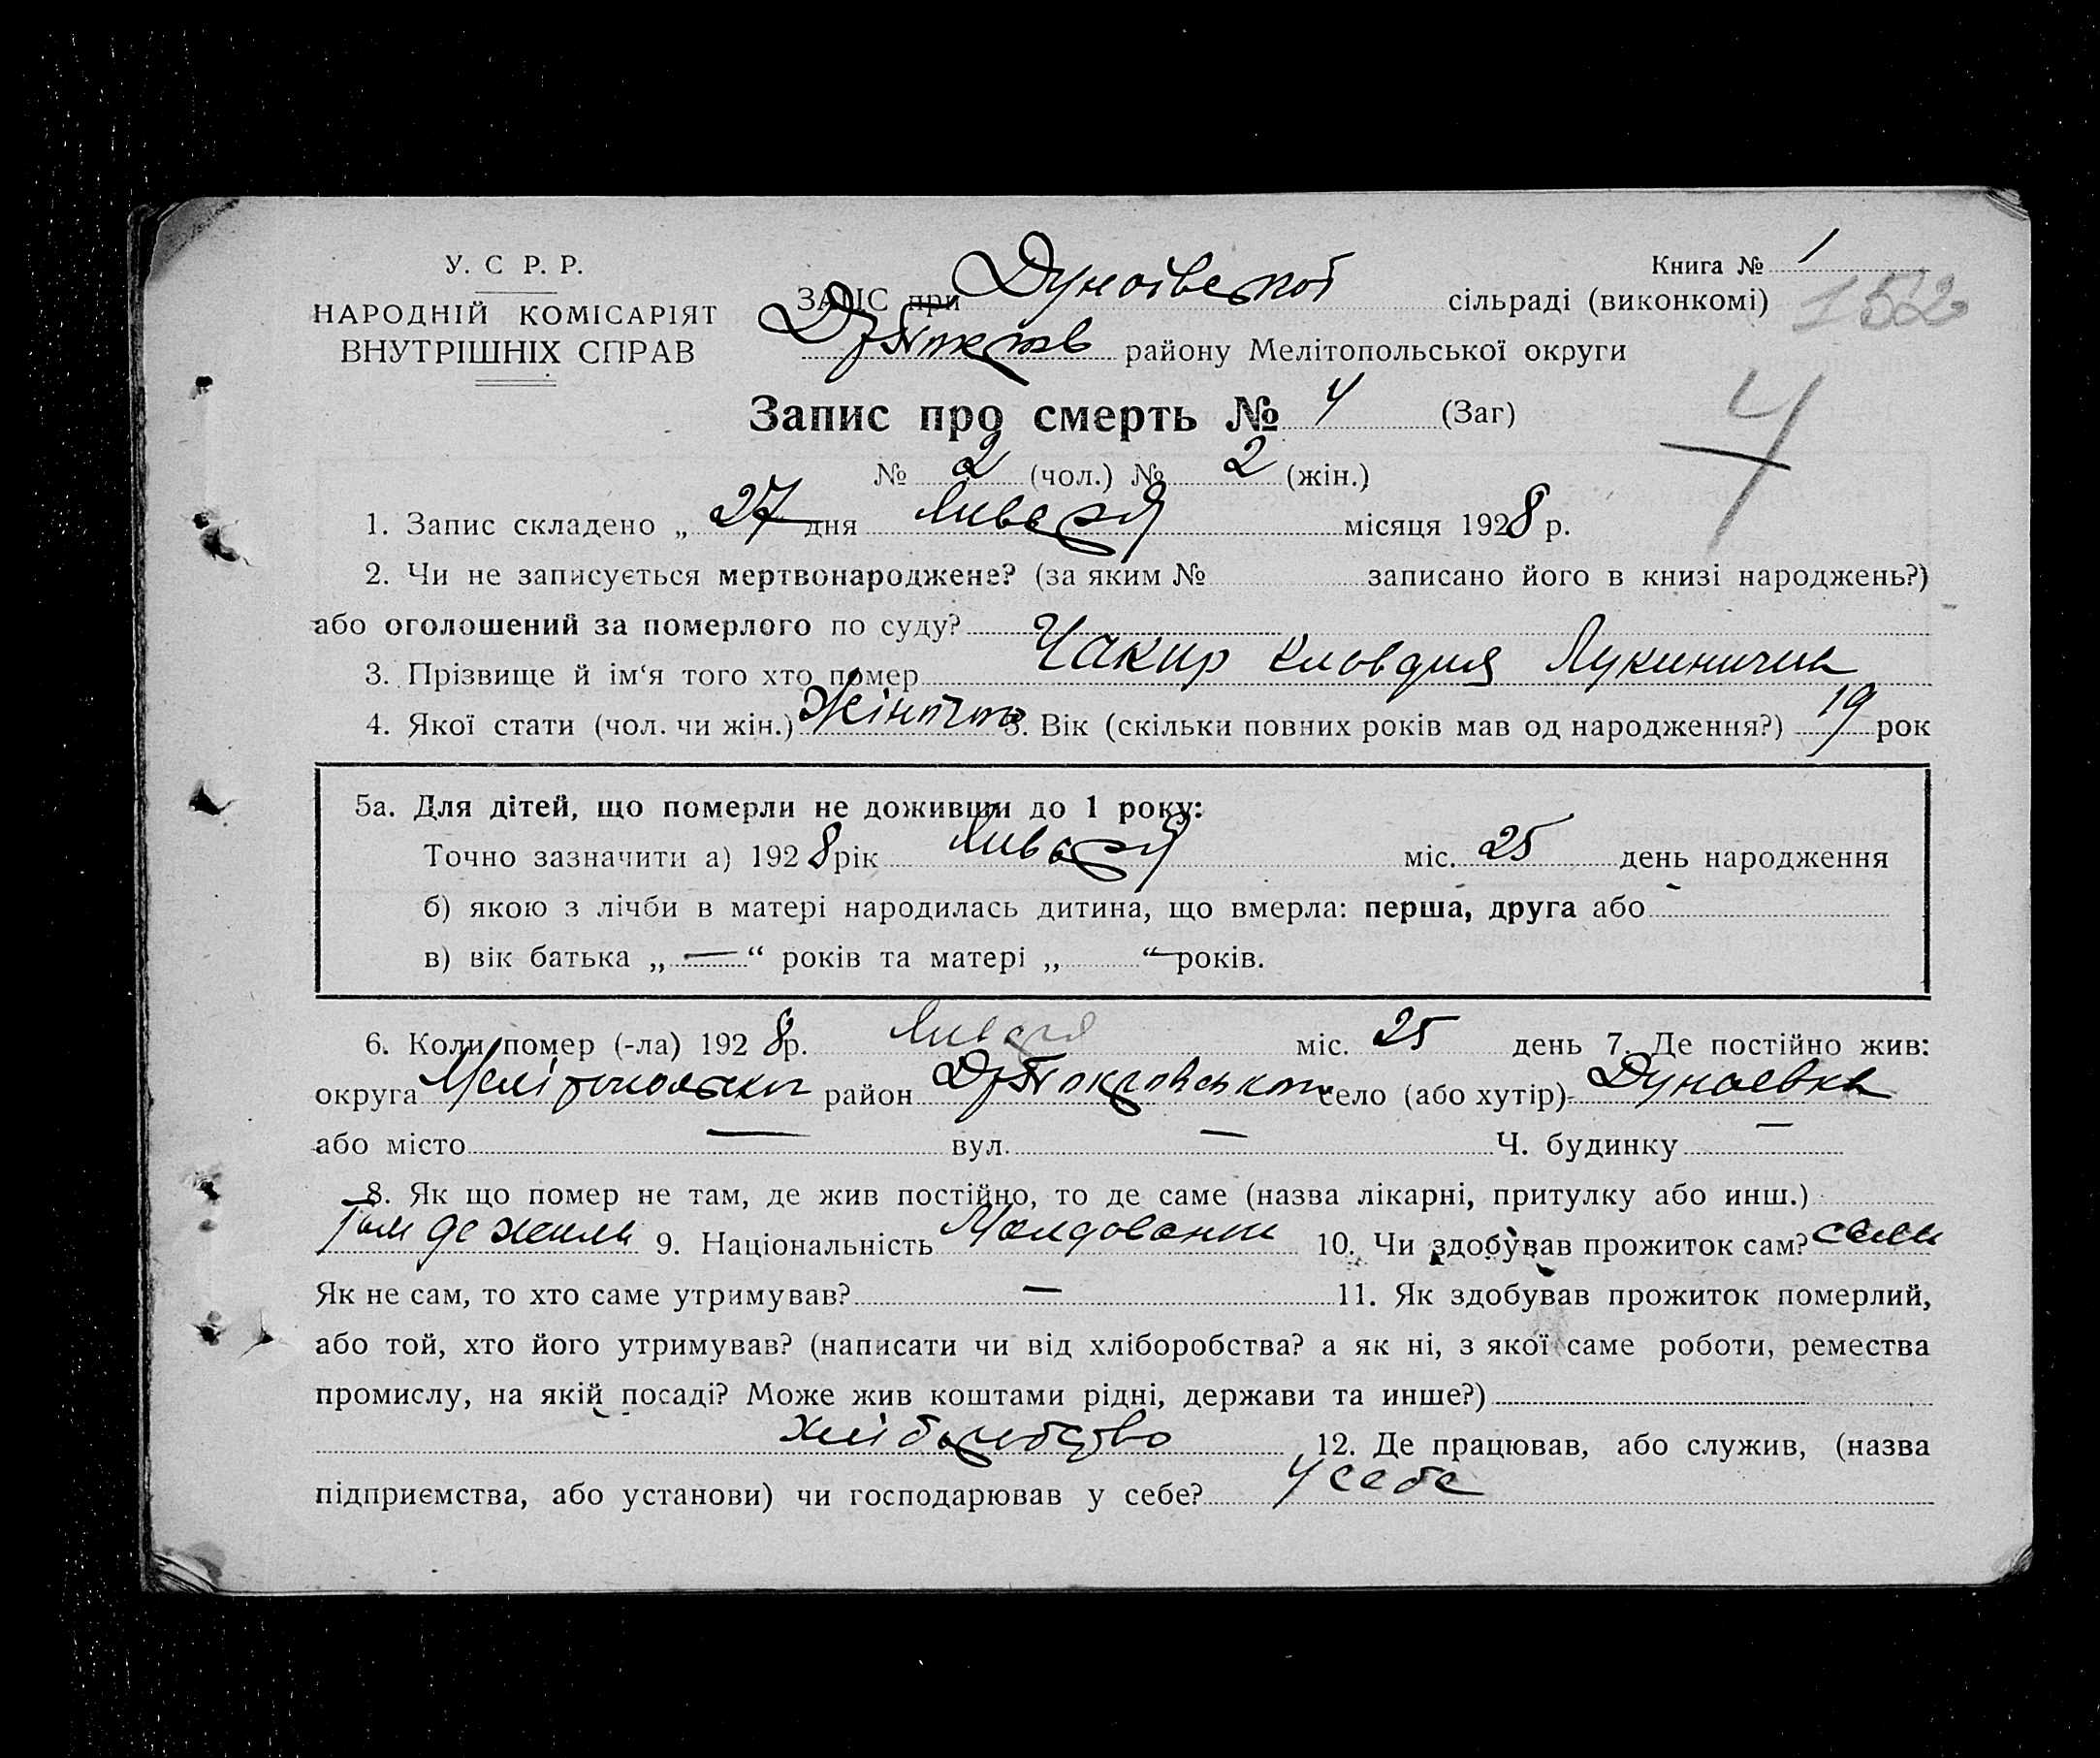 У. С Р. Р.
НАРОДНІЙ КОМІСАРІЯТ
ВНУТРІШНІХ СПРАВ
Книга № 1
152
ЗАГС при Дунаівської сільраді (виконкомі)
району Мелітопольської округи
Запис про смерть № 4 (Заг)
4
№ 2 (чол.) № 2 (жін.)
1. Запис складено „ 27 дня Января місяця 1928 р.
2. Чи не записується мертвонароджене? (за яким № записано його в книзі народжень?)
або оголошений за померлого по суду?
3. Прізвище й ім‘я того хто помер Чакир Кловдия
4. Якої стати (чол. чи жін.) 5. Вік (скільки повних років мав од народження?) 19 рок
5а. Для дітей, що померли не доживши до 1 року:
Точно зазначити а) 1928 рік Января міс. 25 день народження
б) якою з лічби в матері народилась дитина, що вмерла: перша, друга або
в) вік батька „ — “ років та матері „ “ років.
6. Коли помер (-ла) 1928 р. Января міс. 25 день 7. Де постійно жив:
округа район село (або хутір) Дунаевка
або місто — вул. — Ч. будинку —
8. Як що помер не там, де жив постійно, то де саме (назва лікарні, притулку або инш.)
там де жила 9. Національність 10. Чи здобував прожиток сам? сама
Як не сам, то хто саме утримував? — 11. Як здобував прожиток померлий,
або той, хто його утримував? (написати чи від хліборобства? а як ні, з якої саме роботи, ремества
промислу, на якій посаді? Може жив коштами рідні, держави та инше?)
хліборобство 12. Де працював, або служив, (назва
підприємства, або установи) чи господарював у себе? у себе